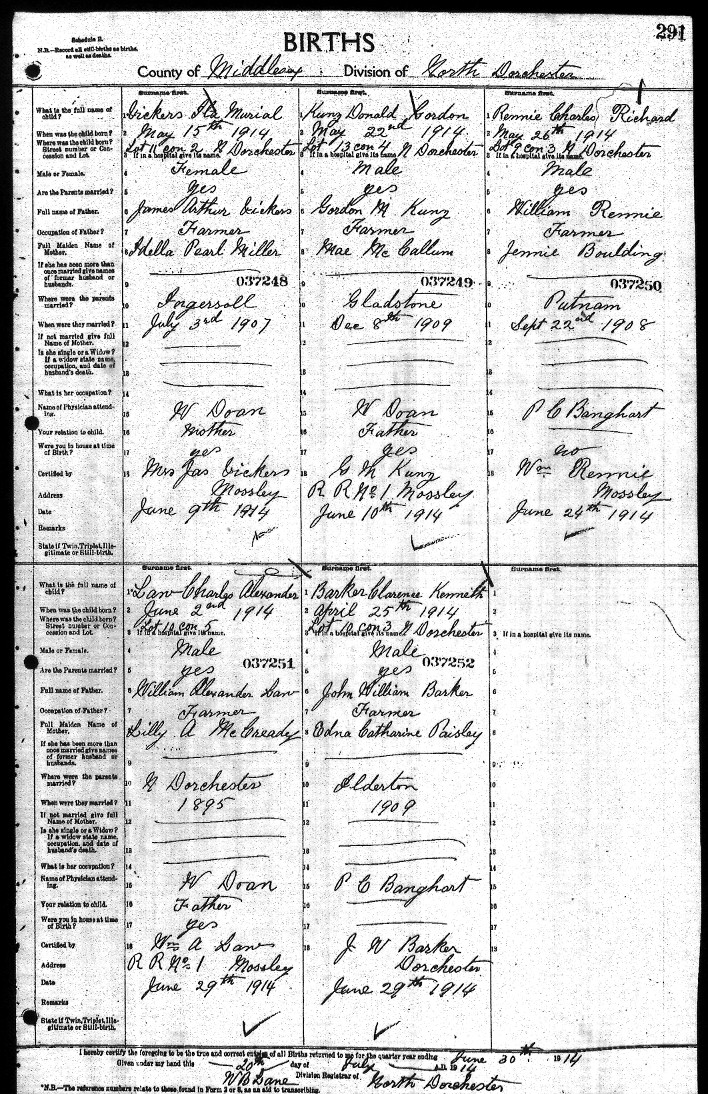 291
Schedule B.
N.B.—Record all still-births as births, as well as deaths.
BIRTHS
County of Middlesex Division of North Dorchester
Surname first. Surname first. Surname first.
What is the full name of child? 1 Vickers Ila Murial 1 Kunz Donald Gordon 1 Rennie Charles Richard
When was the child born? 2 May 15th 1914 2 May 22nd 1914 2 May 26th 1914
Where was the child born? Street number or Concession and Lot. Lot 11 con 2 N Dorchester Lot 13 con 4 N Dorchester Lot 9 con 3 N Dorchester
3 If in a hospital give its name. 3 If in a hospital give its name. 3 If in a hospital give its name.
Male or Female. 4 Female 4 Male 4 Male
Are the Parents married? 5 yes 5 yes 5 yes
Full name of Father. 6 James Arthur Vickers 6 Gordon M Kunz 6 William Rennie
Occupation of Father? 7 Farmer 7 Farmer 7 Farmer
Full Maiden Name of Mother. 8 Idella Pearl Miller 8 Mae McCallum 8 Jennie Boulding
If she has been more than once married give names of former husband or husbands. 9 9 9
037248 037249 037250
Where were the parents married? 10 Ingersoll 10 Gladstone 10 Putnam
When were they married? 11 July 3rd 1907 11 Dec 8th 1909 11 Sept 22nd 1908
If not married give full Name of Mother. 12 12 12
Is she single or a Widow? If a widow state name, occupation, and date of husband's death. 13 13 13
What is her occupation? 14 14 14
Name of Physician attending. 15 W Doan 15 W Doan 15 P C Banghart
Your relation to child. 16 Mother 16 Father 16
Were you in house at time of Birth? 17 yes 17 yes 17 no
Certified by 18 Mrs Jas Vickers 18 G M Kunz 18 Wm Rennie
Address Mossley R R No 1 Mossley Mossley
Date June 9th 1914 June 10th 1914 June 24th 1914
Remarks
State if Twin, Triplet, Illegitimate or Still-birth.
Surname first. Surname first. Surname first.
What is the full name of child? 1 Law Charles Alexander 1 Barker Clarence Kenneth 1
When was the child born? 2 June 2nd 1914 2 April 25th 1914 2
Where was the child born? Street number or Concession and Lot. Lot 10 con 5 Lot 10 con 3 N Dorchester
3 If in a hospital give its name. 3 If in a hospital give its name. 3 If in a hospital give its name.
Male or Female. 4 Male 4 Male 4
037251 037252
Are the Parents married? 5 yes 5 yes 5
Full name of Father. 6 William Alexander Law 6 John William Barker 6
Occupation of Father? 7 Farmer 7 Farmer 7
Full Maiden Name of Mother. 8 Lilly A McCready 8 Edna Catharine Paisley 8
If she has been more than once married give names of former husband or husbands. 9 9 9
Where were the parents married? 10 N Dorchester 10 Ilderton 10
When were they married? 11 1895 11 1909 11
If not married give full Name of Mother. 12 12 12
Is she single or a Widow? If a widow state name, occupation, and date of husband's death. 13 13 13
What is her occupation? 14 14 14
Name of Physician attending. 15 W Doan 15 P C Banghart 15
Your relation to child. 16 Father 16 16
Were you in house at time of Birth? 17 yes 17 17
Certified by 18 Wm A Law 18 J. W Barker 18
Address R R No 1 Mossley Dorchester
Date June 29th 1914 June 29th 1914
Remarks
State if Twin, Triplet, Illegitimate or Still-birth.
I hereby certify the foregoing to be the true and correct entries of all Births returned to me for the quarter year ending June 30th 1914
Given under my hand this 20th day of July A.D. 1914
W B Lane Division Registrar of North Dorchester
*N.B.—The reference numbers relate to those found in Form 2 or 3, as an aid to transcribing.